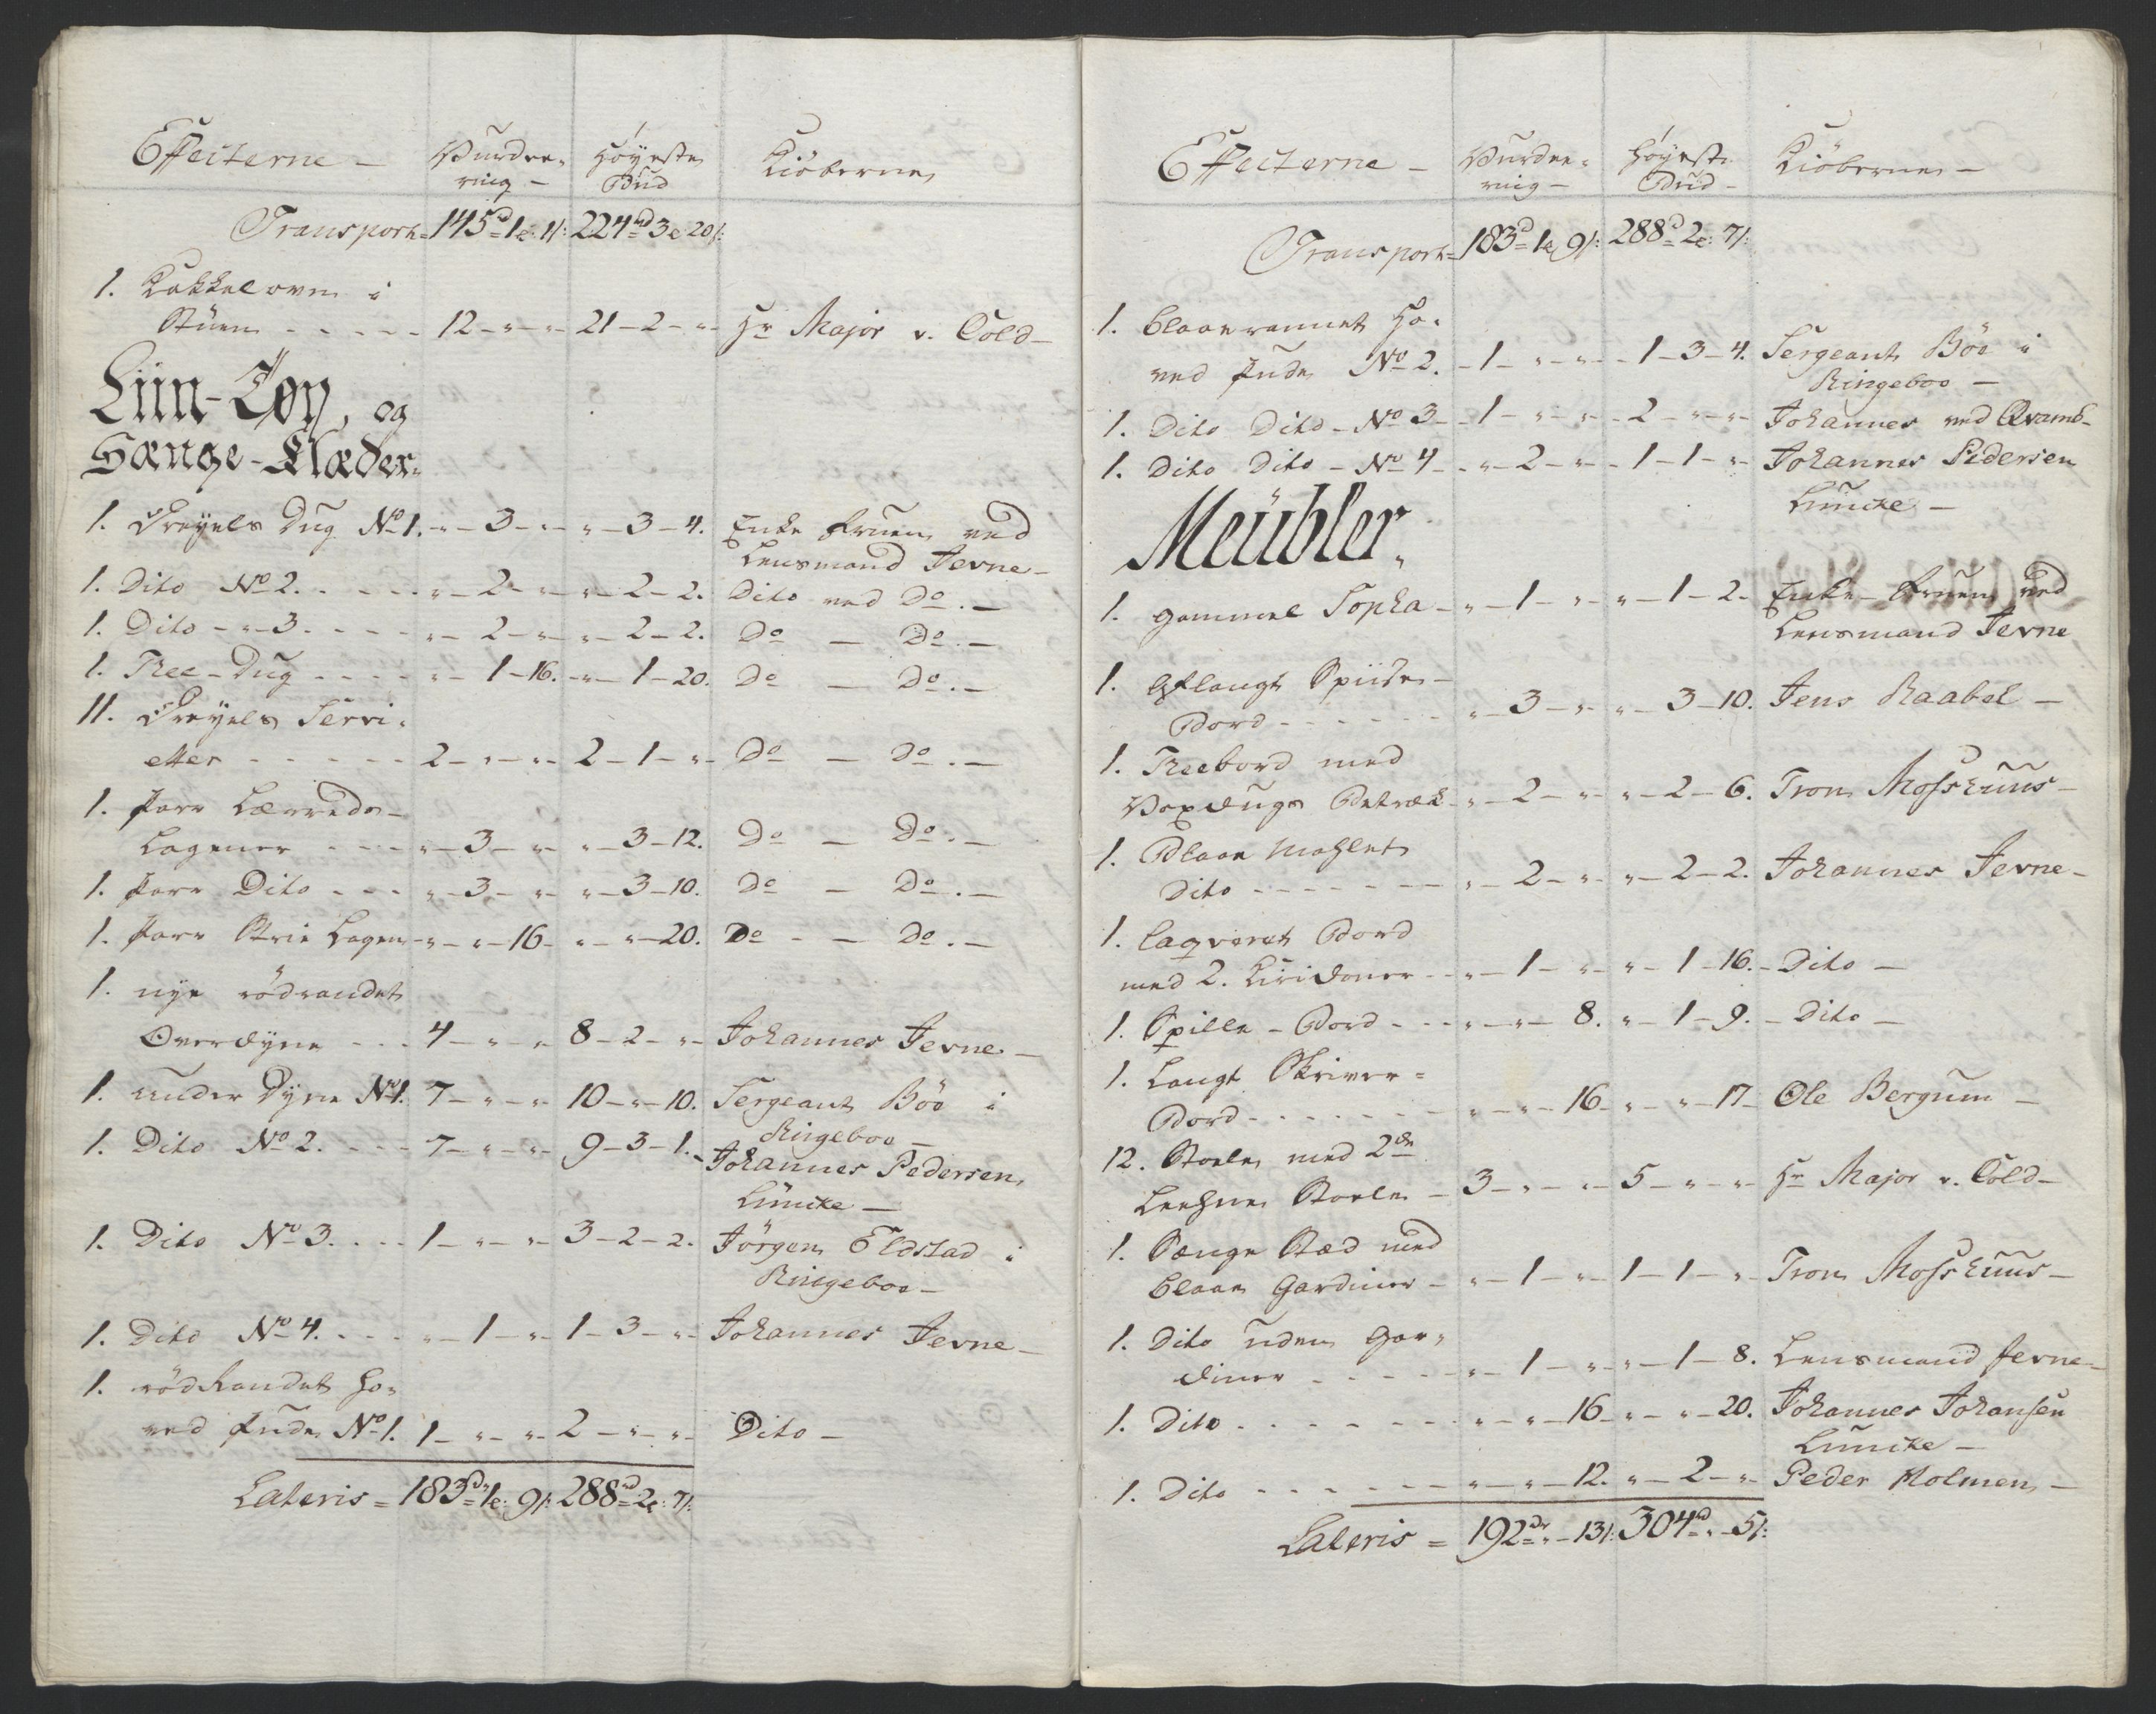 Effecterne – Vurdee- Høyeste Kiöberne
ring – Bud
Transport = 145rd 1e: 1/: 224rd 3e 20/:
1. Kakkelovn i
Stuen - - - - - 12 – " – " – 21 – 2 – " – Hr Major v. Cold –
Liin-Tøy, og
Sænge-Klæder.
1. Dreyels Dug No 1. – " – 3 – " – " – 3 – 4. Enke Fruen ved
Lensmand Jevne –
1. Dito No 2. - - - " – 2 – " – " – 2 – 2. Dito ved Do. –
1. Dito – " – 3. - - - " – 2 – " – " – 2 – 2. Do – Do. –
1. Tree-Dug - - - - " – 1 – 16. – " – 1 – 20. Do – Do. –
11. Dreyels Servi-
etter - - - - - 2 – " – " – 2 – 1 – " – Do – Do. –
1. Parr Lærreds-
Lagener - - - " – 3 – " – " – 3 – 12. Do – Do. –
1. Parr Dito - - - " – 3 – " – " – 3 – 10. Do – Do. –
1. Parr Strie Lagen – " – " – 16 – " – " – 20. Do – Do. –
1. nye rödrandet
Overdyne - - - 4 – " – " 8 – 2 – " – Johannes Jevne –
1. under Dyne No 1. 7 – " – " – 10 – " – 10. Sergeant Böe i
Ringeboe –
1. Dito No 2. - - - 7 – " – " – 9 – 3 – 1. – Johannes Pedersen
Lüncke –
1. Dito No 3. - - - 1 – " – " – 3 – 2 – 2. Jörgen Eldstad i
Ringeboe –
1. Dito No 4. - - - " – 1 – " – 1 – 3 – " – Johannes Jevne –
1. rödRandet Ho-
ved Pude No 1. 1 – " – " – 2 – " – " – Dito –
Lateris = 183rd 1e: 9/: 288rd 2e: 7/:
Effecterne – Vurdee- Høyeste Kiöberne –
ring – Bud –
Transport = 183d 1e 9/: 288d 2e: 7/:
1. blaaerannet Ho-
ved Pude No 2. – 1 – " – " – 1 – 3 – 4. Sergeant Böe i
Ringeboe –
1. Dito Dito – No 3 – 1 – " – " – 2 – " – " – Johannes ved Qvamb –
1. Dito Dito – No 4 – " – 2 – " – 1 – 1 – " – Johannes Pedersen
Lüncke –
Meübler.
1. gammel Sopha – " – 1 – " – " – 1 – 2. Enke-Fruen ved
Lensmand Jevne
1. aflangt Spiise-
Bord - - - - - " – 3 – " – " – 3 – 10. Jens Raabel –
1. Treebord med
Voxdugs Betræk – " – 2 – " – " – 2 – 6. Tron Mosshuus –
1. Blaae Mahlet
Dito - - - - - " – 2 – " – " – 2 – 2. Johannes Jevne –
1. laqveret Bord
med 2. Giridoner - - " – 1 – " – " – 1 – 16. – Dito –
1. Spille-Bord - - - " – " – 8. " – 1 – 9. – Dito –
1. Langt Skriver-
Bord - - - - - " – " – 16 – " – " – 17 – Ole Bergum –
12. Stoele med 2de
Leehne Stoele – 3 – " – " – 5 – " – " – Hr Major v. Cold –
1. Senge Sted med
blaae Gardiner – " – 1 – " – 1 – 1 – " – Tron Mosshuus –
1. Dito uden Gar-
diner - - - - " – 1 – " – " – 1 – 8. Lensmand Jevne –
1. Dito - - - - - " – " – 16 – " – " – 20. Johannes Johansen
Luncke –
1. Dito - - - - - " – " – 12. " – 2 – " – Peder Holmen –
Lateris = 192rd " – 13/: 304rd " – 5/: